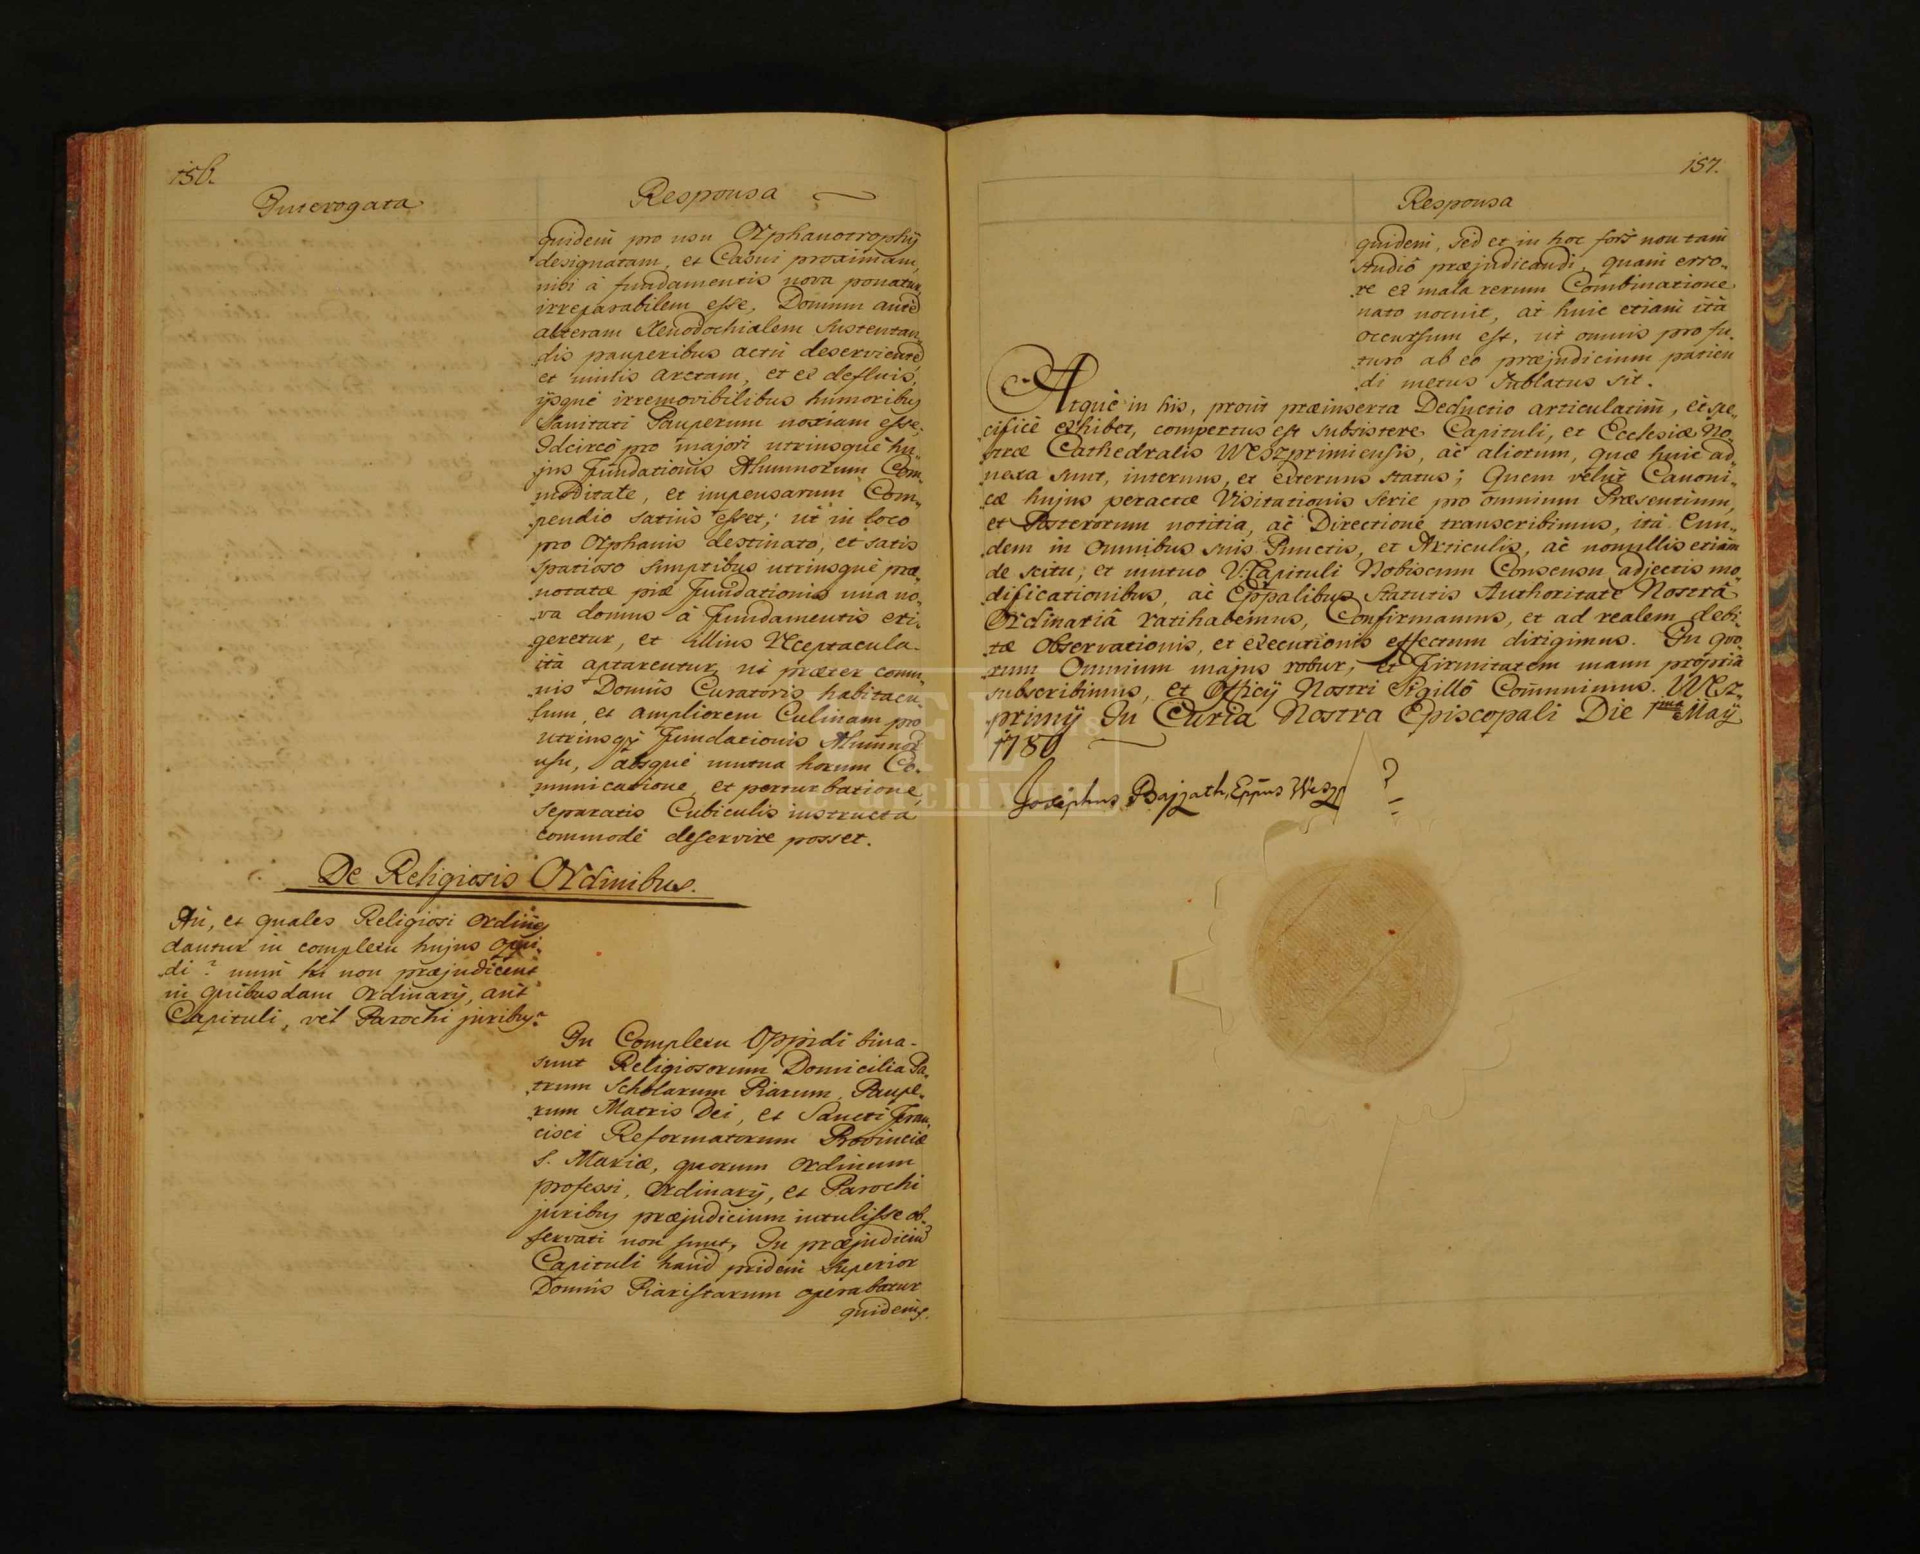 156.
Interrogata
Responsa
quidem pro usu Orphanotrophij
designatam, et Casui proximam,
nisi à fundamentis nova ponatur,
irreparabilem esse, Domum autem
alteram Xenodochialem sustentan„
„dis pauperibus actu deservientem
et nimis arctam, et ex defluis,
ijsque irremovibilibus humoribus
Sanitati Pauperum noxiam esse.
Idcirco pro majori utriusque hu„
„jus Fundationis Alumnorum Com„
„moditate, et impensarum Com„
„pendio satius esset; ut in loco
pro Orphanis destinato, et satis
spatioso sumptibus utriusque præ„
„notatæ piæ Fundationis una no„
„va domus à Fundamentis eri„
„geretur, et illius Receptacula
ità aptarentur, ut præter commu„
„nis Domûs Curatoris habitacu„
„lum, et ampliorem Culinam pro
utriusque Fundationis Alumnorum
usu, absque mutua horum Co„
„mmunicatione, et perturbatione,
separatis Cubiculis instructa
commodè deservire posset.
De Religiosis Ordinibus.
An, et quales Religiosi ordines
dantur in complexu hujus oppi„
„di? num hi non præjudicent
in quibusdam Ordinarij, aut
Capituli, vel Parochi juribus?
In Complexu Oppidi bina
sunt Religiosorum Domicilia Pa„
„trum Scholarum Piarum, Paupe„
„rum Matris Dei, et Sancti Fran„
cisci Reformatorum Provinciæ
S. Mariæ, quorum ordinum
professi, Ordinarij, et Parochi
juribus præjudicium intulisse ob„
servati non sunt. In præjudicium
Capituli haud pridem Superior
Domûs Piaristarum operabatur
quidem
157.
Responsa
quidem, sed et in hoc fors non tam
studiô præjudicandi, quam erro„
„re ex mala rerum Combinatione
nato nocuit, at huic etiam ità
occursum est, ut omnis pro fu„
„turo ab eo præjudicium patien
„di metus sublatus sit.
Atque in his, prout præinserta Deductio articulatim, et spe„
„cificè exhibet, compertus est subsistere Capituli, et Ecclesiæ No„
„stræ Cathedralis Weszprimiensis, ac aliorum, quæ huic ad„
„nexa sunt, internus, et externus status; Quem velut Canoni„
„cæ hujus peractæ Visitationis serie pro omnium Præsentium,
et Posterorum notitia, ac Directione transcribimus, ità Eun„
„dem in Omnibus suis Punctis, et Articulis, ac nonnullis etiam
de scitu, et mutuo V. Capituli Nobiscum Consensu adjectis mo„
„dificationibus, ac Eppalibus Statutis Authoritate Nostrâ
Ordinariâ ratihabemus, Confirmamus, et ad realem debi„
„tæ Observationis, et executionis effectum dirigimus. In quo„
„rum Omnium majus robur, et Firmitatem manu propriâ
subscribimus, et Officij Nostri Sigillô Communimus. Wesz„
„primij In Curia Nostra Episcopali Die 1ma Maÿ
1780
Josephus Bajzath, Eppus Weszp
?